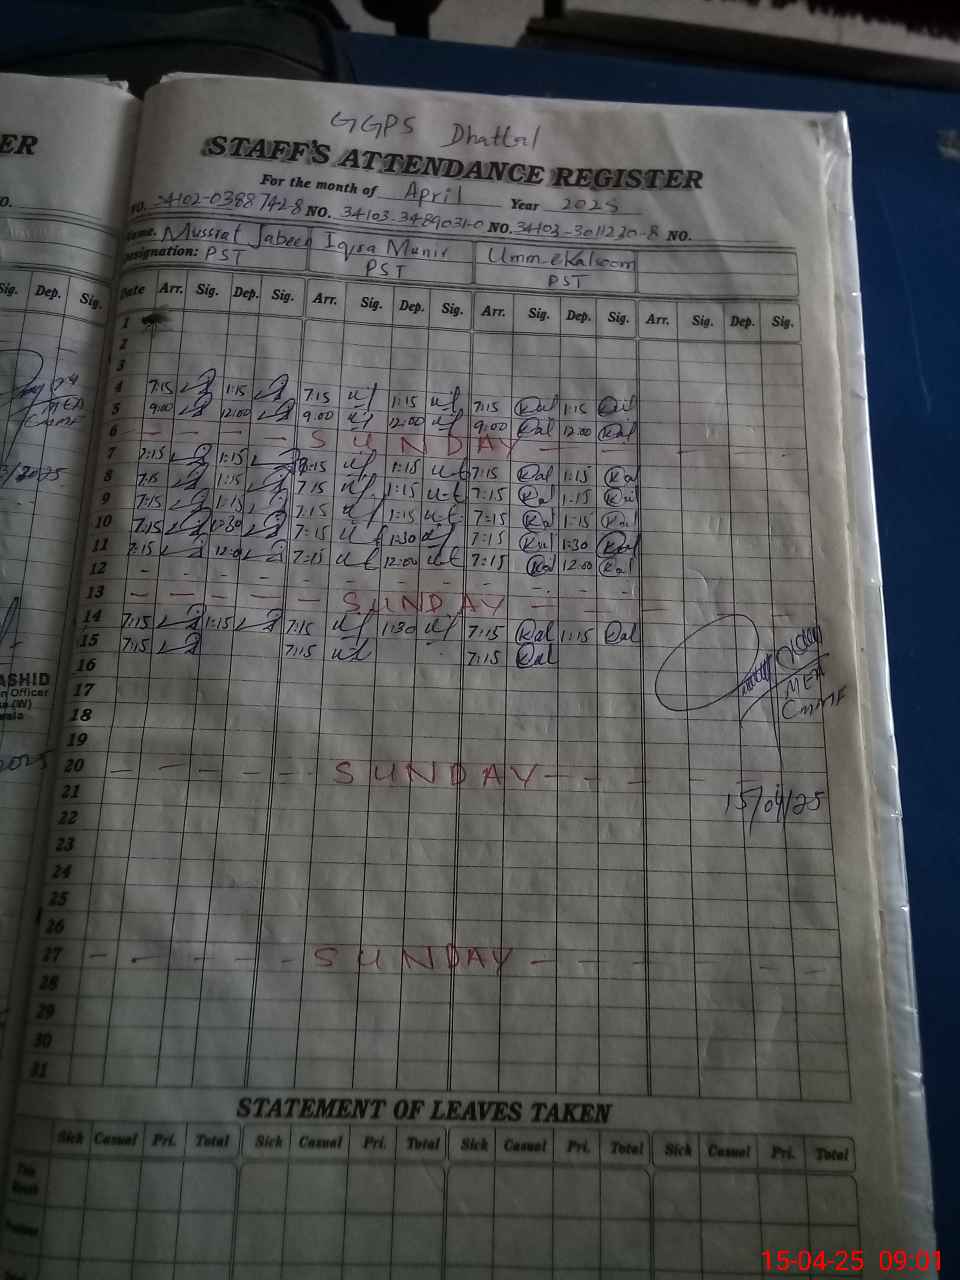 GGPS Dhattal
ER
STAFF'S ATTENDANCE REGISTER
For the month of April Year 2025
NO. 34102-0388742-8 NO. 34103-3489031-0 NO. 34103-3011230-8 NO.
Name. Mussrat Jabeen Iqra Munir Umm-e-Kalsoom
Designation: PST PST PST
Sig. Dep. Sig. Date Arr. Sig. Dep. Sig. Arr. Sig. Dep. Sig. Arr. Sig. Dep. Sig. Arr. Sig. Dep. Sig.
1
2
3
4 7:15 1:15 7:15 1:15 7:15 Kal 1:15 Kal
5 9:00 12:00 9:00 12:00 9:00 Kal 12:00 Kal
MEA
6 - - - - SUNDAY - - - - -
7 7:15 1:15 7:15 1:15 7:15 Kal 1:15 Kal
8 7:15 1:15 7:15 1:15 7:15 Kal 1:15 Kal
9 7:15 1:15 7:15 1:15 7:15 Kal 1:15 Kal
10 7:15 1:30 7:15 1:30 7:15 Kal 1:30 Kal
11 7:15 12:00 7:15 12:00 7:15 Kal 12:00 Kal
12 - - - - - - - - - -
13 - - - - - SUNDAY - - - - - -
14 7:15 1:15 7:15 1:30 7:15 Kal 1:15 Kal
15 7:15 7:15 7:15 Kal
16
ASHID
17
MEA
18
19
20 - - - - - SUNDAY - - - - - -
21
15/04/25
22
23
24
25
26
27 - - - - - SUNDAY - - - - - - -
28
29
30
31
STATEMENT OF LEAVES TAKEN
Sick Casual Pri. Total Sick Casual Pri. Total Sick Casual Pri. Total Sick Casual Pri. Total
This Month
15-04-25 09:01